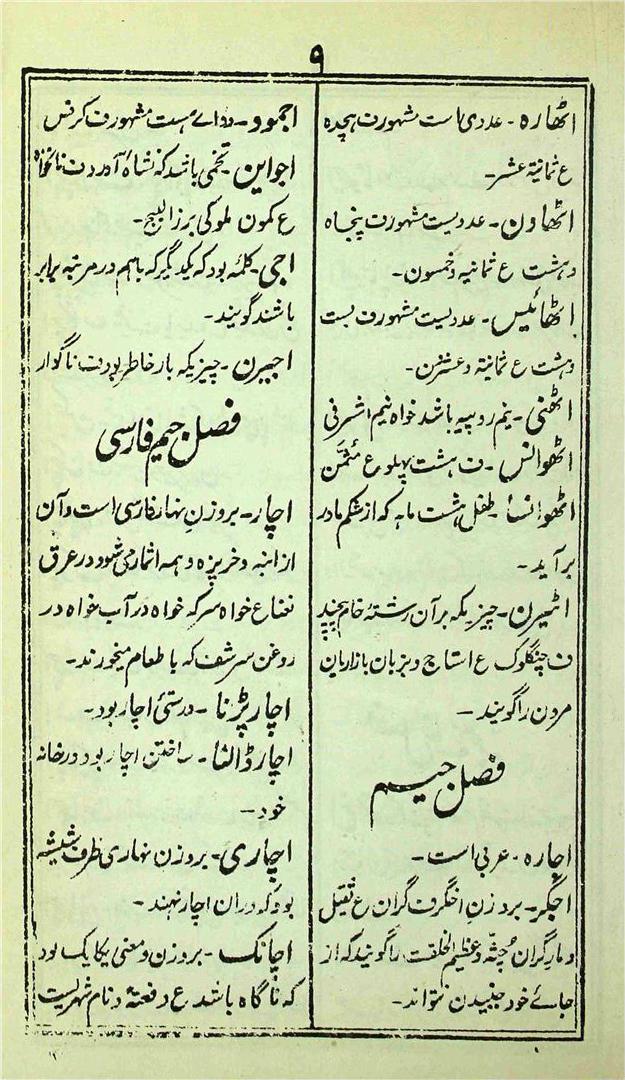 ۹
اٹھارہ - عددی است مشهور ف ہیجدہ
ع ثمانیة عشر -
اٹھاون - عددیست مشهور ف پنجاہ
و ہشت ع ثمانیه و خمسون -
اٹھائیس - عددیست مشهور ف بست
و ہشت ع ثمانیة و عشرین -
اٹھنی - نیم روپیه باشد خواہ نیم اشرفی
اٹھوانس - ف ہشت پہلو ع مثمّن
اٹھوانسا - طفل ہشت ماہه که از شکم مادر
برآید -
اٹیرن - چیزیکه برآن رشتهٔ خام پیچند
ف چنگلوک ع استاج و بزبان بازاریان
مردن را گویند -
فصل جیم
اجارہ - عربی است -
اجگر - بروزن اخگر ف گران ع ثقیل
و مار گران جثّه و عظیم الخلقت را گویند که از
جائے خود جنبیدن نتواند -
اجمود - دوائے هست مشهور ف کرفس
اجواین - تخمی باشد که نشاہ آورد ف نانخواہ
ع کمون ملوکی برز البنج -
اجی - کلمه بود که یکدیگر که باہم در مرتبه برابر
باشند گویند -
اجیرن - چیزیکه بار خاطر بود ف ناگوار
فصل جیم فارسی
اچار - بروزن نہار فارسی است و آن
از انبه و خربزہ و ہمه اثمار می شود در عرق
نعناع خواہ سرکه خواہ در آب خواہ در
روغن سرشف که با طعام میخورند -
اچار پڑنا - درستیٔ اچار بود -
اچار ڈالنا - ساختن اچار بود در خانه
خود -
اچاری - بروزن نہاری ظرف شیشه
بود که دران اچار نهند -
اچانک - بروزن و معنی یکایک بود
که ناگاہ باشد ع دفعةً و نام شهریست